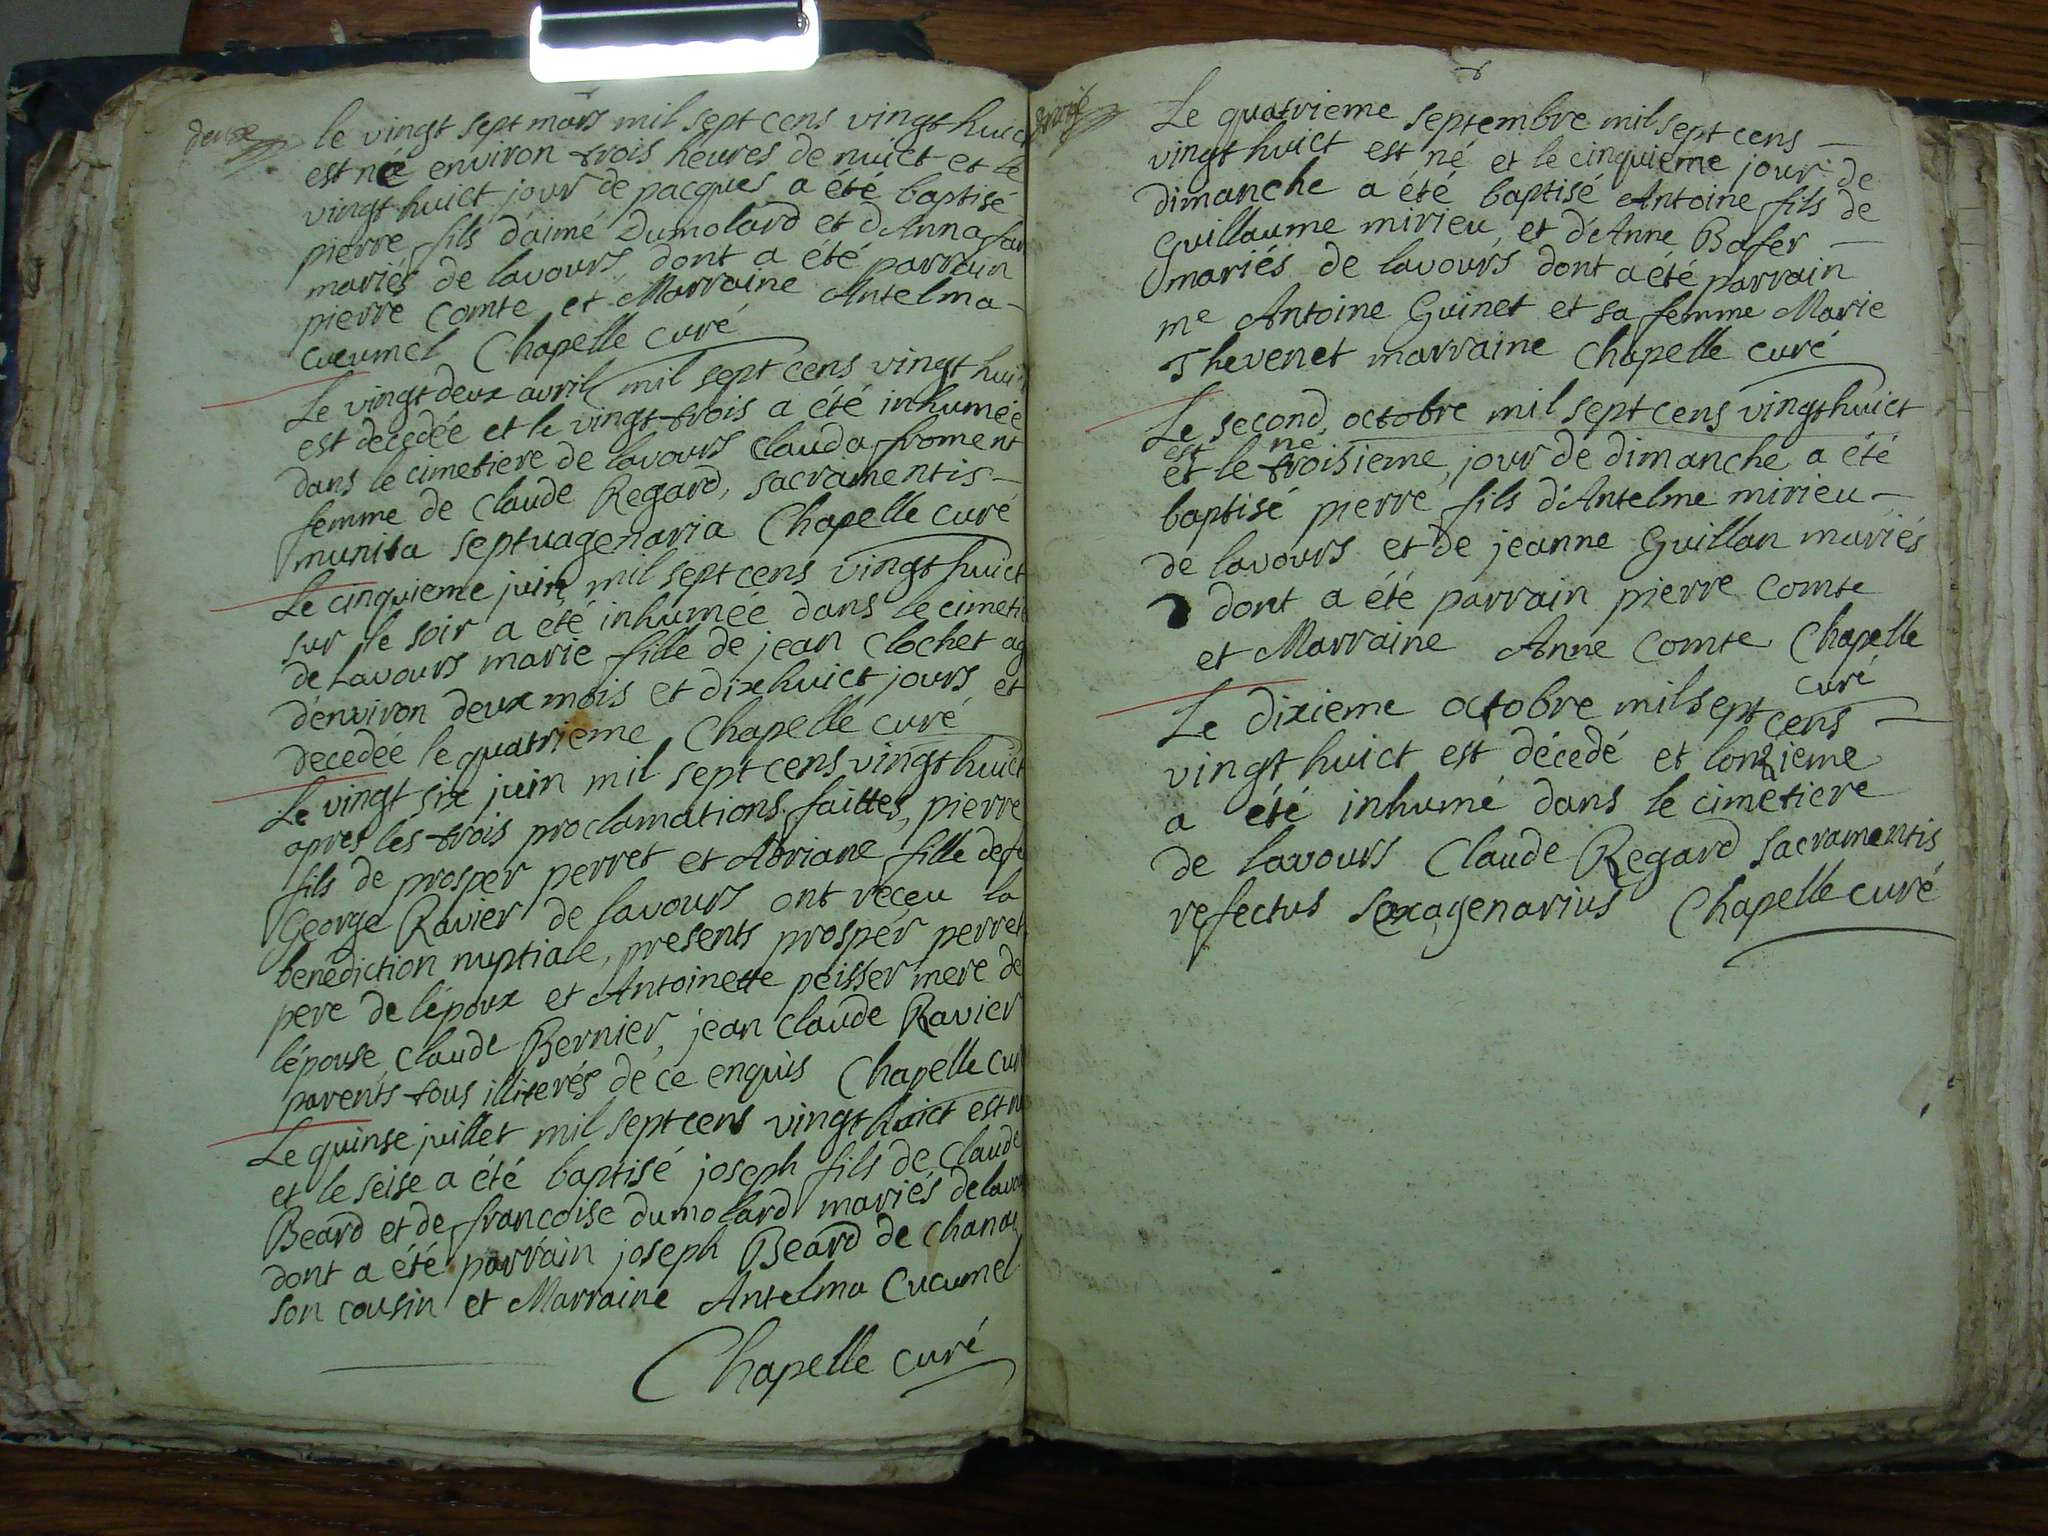 deuxe
le vingt sept mars mil sept cens vingt huict
est né environ trois heures de nuict et le
vingt huict jour de pacques a été baptisé
pierre fils d'aimé Dumolard et d'Anna
mariés de lavours dont a été parrain
pierre Comte et Marraine Antelma
Cucumel Chapelle curé
Le vingt deux avril mil sept cens vingt huict
est decedée et le vingt trois a été inhumée
dans le cimetiere de lavours Clauda froment
femme de Claude Regard, sacramentis
munita septuagenaria Chapelle curé
Le cinquieme juin mil sept cens vingt huict
sur le soir a été inhumée dans le cimeti
de Lavours marie fille de jean Clochet ag
d'environ deux mois et dix huict jours et
decedée le quatrieme Chapelle curé
Le vingt six juin mil sept cens vingt huict
apres les trois proclamations faittes, pierre
fils de prosper perret et Adriane fille de fe
George Ravier de lavours ont receu la
benediction nuptiale, presents prosper perret
pere de l'époux et Antoinette peisser mere de
l'épouse, Claude Bernier, jean Claude Ravier
parents tous illiterés de ce enquis Chapelle cur
Le quinse juillet mil sept cens vingt huict est n
et le seise a été baptisé joseph fils de Claude
Beard et de francoise dumolard mariés de lavou
dont a été parrain joseph Beard de Chana
son cousin et Marraine Antelma Cucumel
Chapelle curé
Le quatrieme septembre mil sept cens
vingt huict est né et le cinquieme jour de
dimanche a été baptisé Antoine fils de
Guillaume mirieu et d'Anne Bafer
mariés de lavours dont a été parrain
me Antoine Guinet et sa femme Marie
Thevenet marraine Chapelle curé
Le second octobre mil sept cens vingt huict
est né
et le troisieme jour de dimanche a été
baptisé pierre fils d'Antelme mirieu
de lavours et de jeanne Guillan mariés
dont a été parrain pierre Comte
et Marraine Anne Comte Chapelle
curé
Le dixieme octobre mil sept cens
vingt huict est décedé et l'onzieme
a été inhumé dans le cimetiere
de lavours Claude Regard sacramentis
refectus sexagenarius Chapelle curé